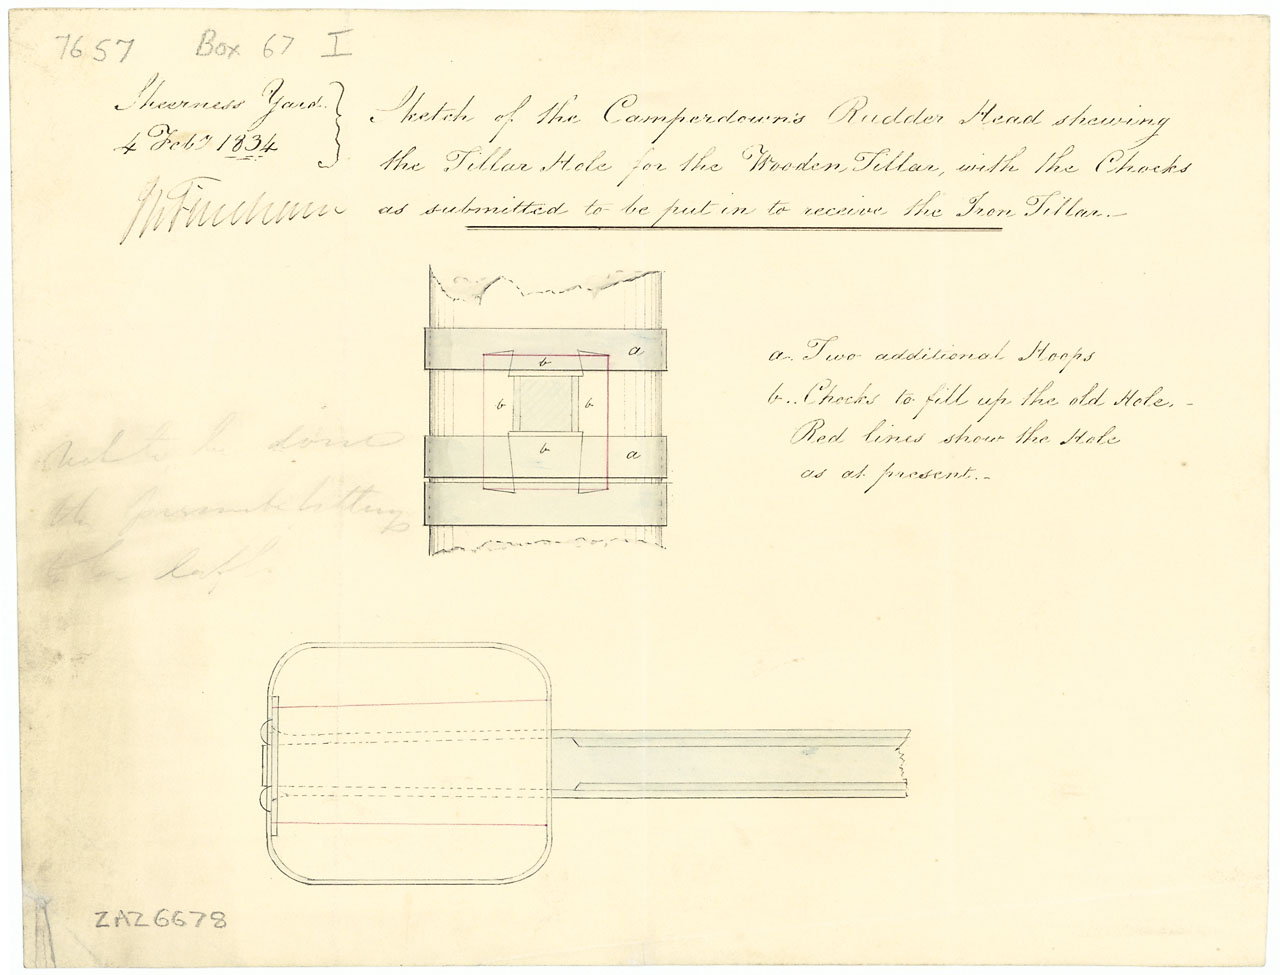 7657 Box 67 I
Sheerness Yard.
4 Feby 1834
Sketch of the Camperdown's Rudder Head shewing
the Tillar Hole for the Wooden Tillar, with the Chocks
as submitted to be put in to receive the Iron Tillar.
a
b
b b
b
a
a. Two additional Hoops
b.. Chocks to fill up the old Hole.
Red lines show the Hole
as at present..
ZAZ6678